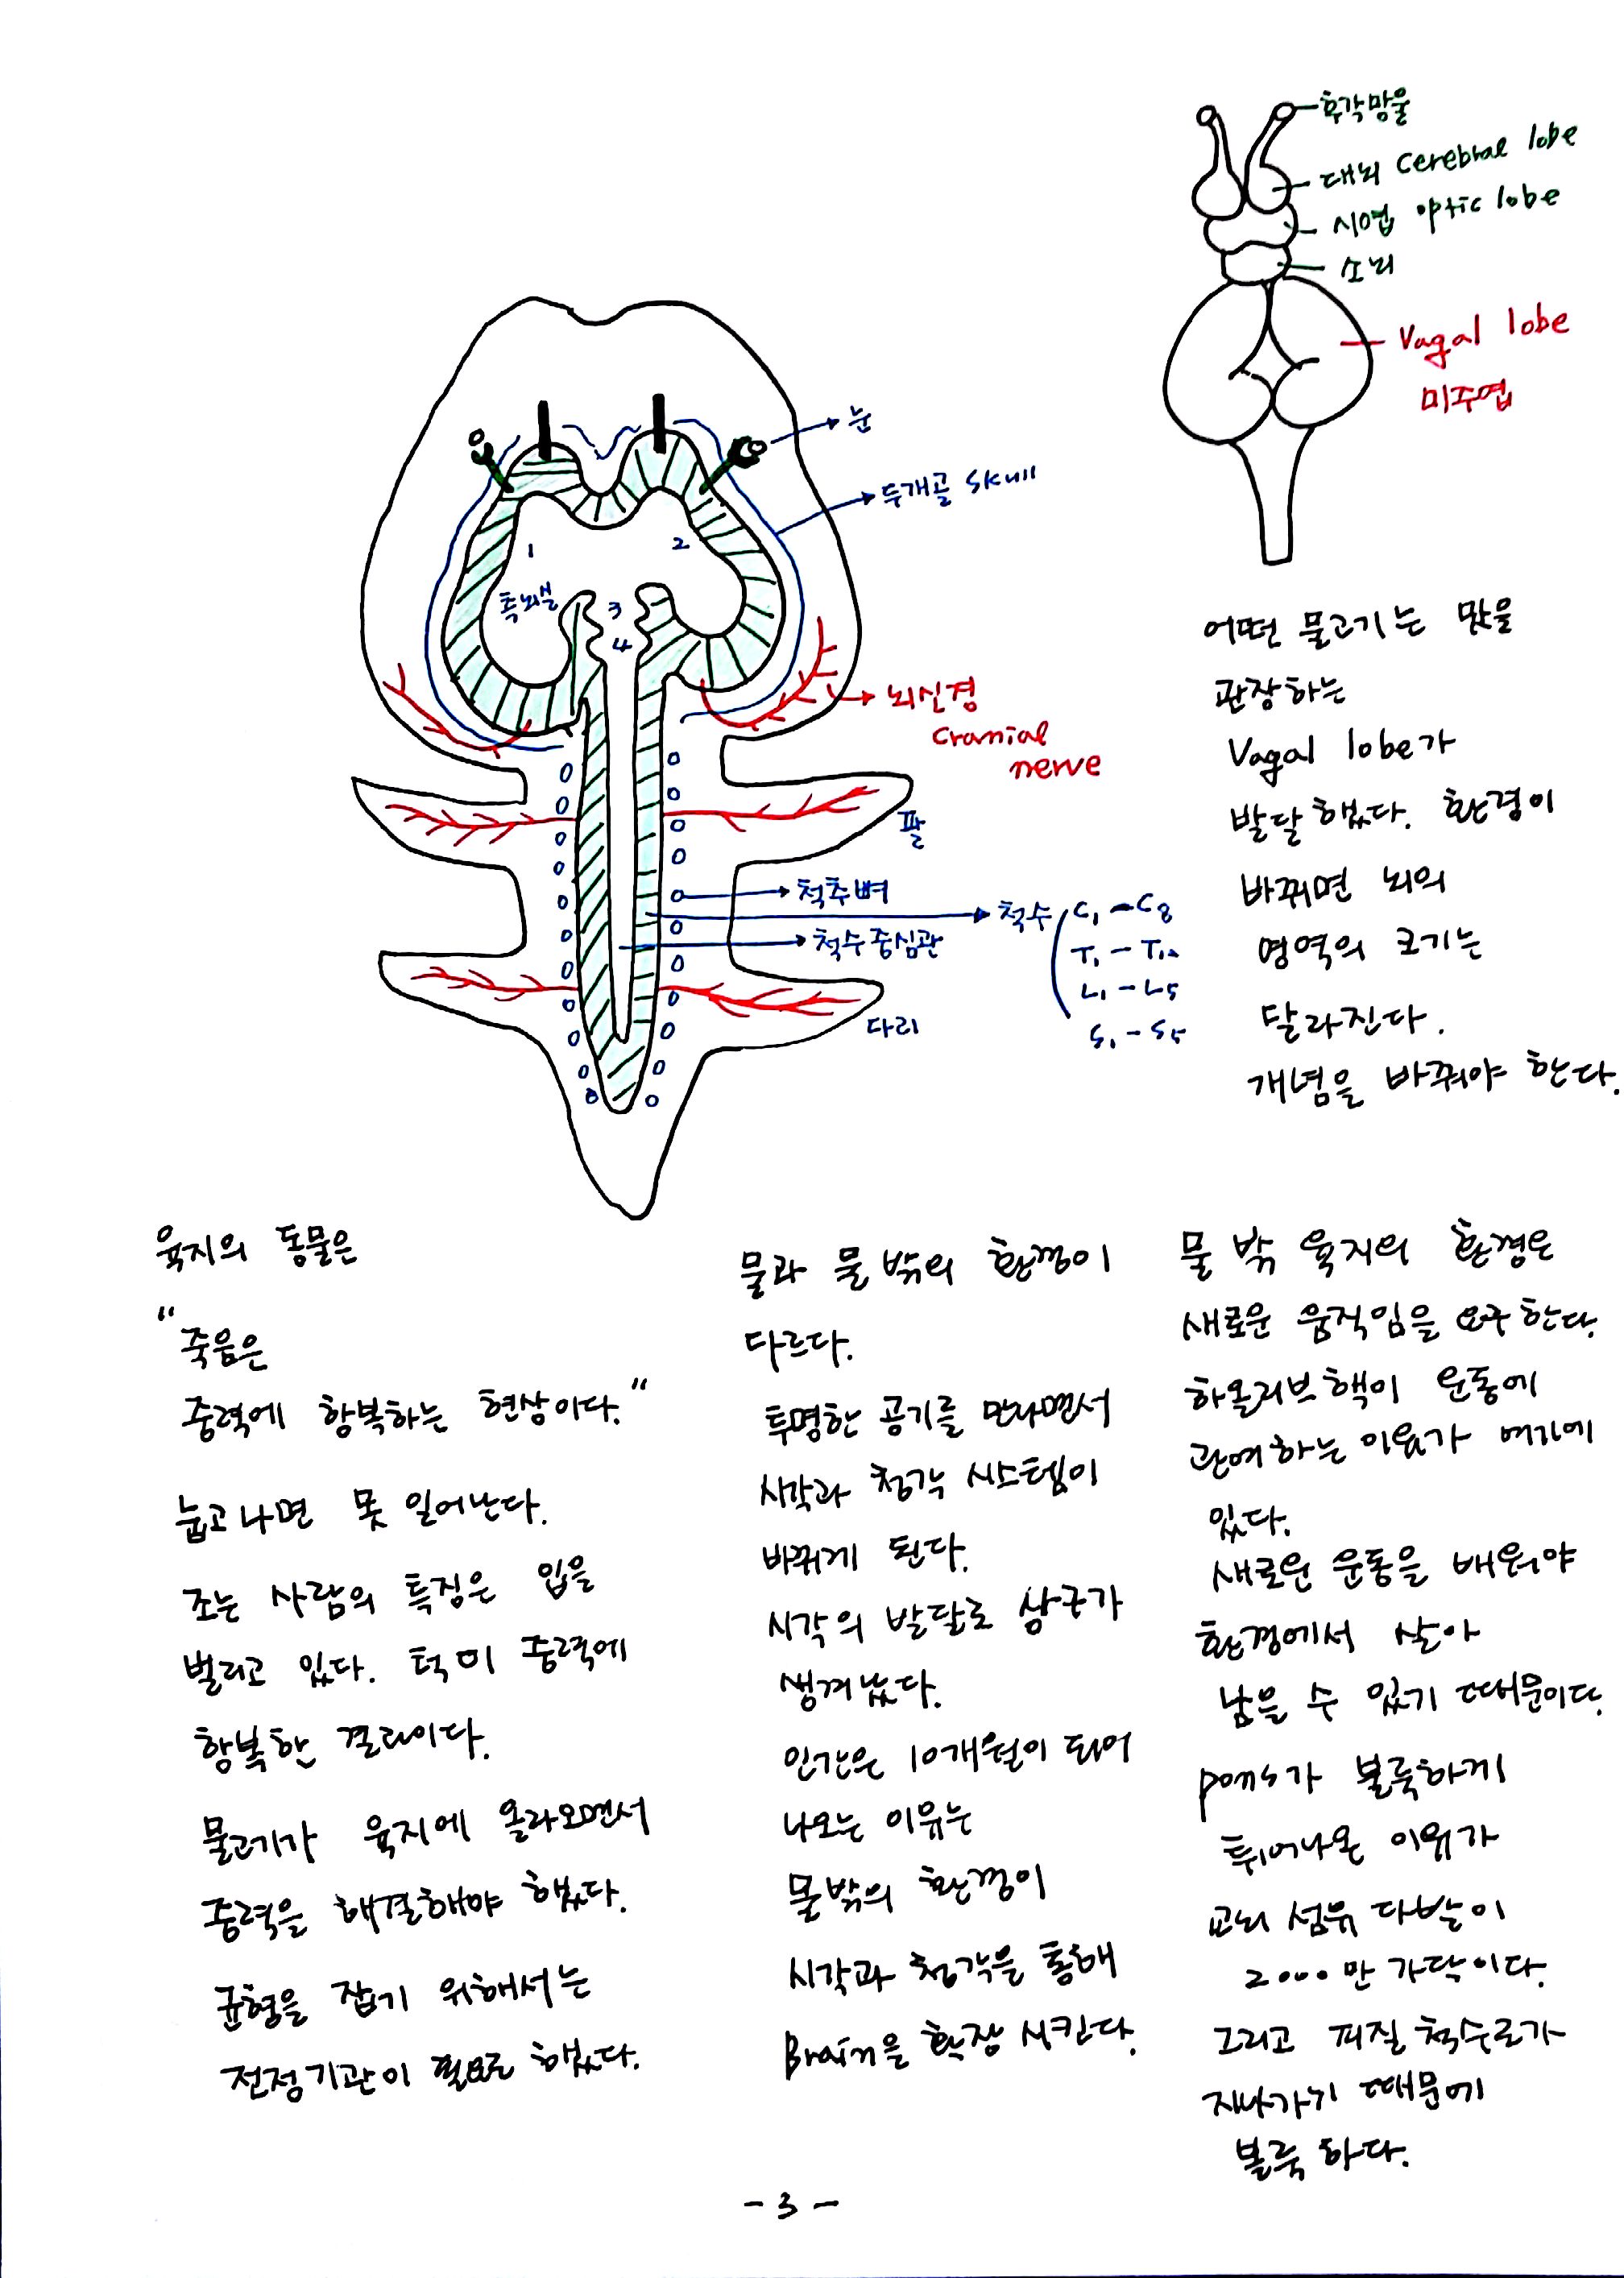 후각망울
대뇌 Cerebral lobe
시엽 optic lobe
소뇌
Vagal lobe
미주엽
눈
두개골 skull
1
2
측뇌실
3
4
뇌신경
cranial
nerve
팔
척추뼈
척수
C1 - C8
T1 - T12
L1 - L5
S1 - S5
척수중심관
다리
어떤 물고기는 맛을
관장하는
Vagal lobe가
발달했다. 환경이
바뀌면 뇌의
영역의 크기는
달라진다.
개념을 바꿔야 한다.
육지의 동물은
"죽음은
중력에 항복하는 현상이다."
눕고나면 못 일어난다.
조는 사람의 특징은 입을
벌리고 있다. 턱이 중력에
항복한 결과이다.
물고기가 육지에 올라오면서
중력을 해결해야 했다.
균형을 잡기 위해서는
전정기관이 필요로 했다.
물과 물 밖의 환경이
다르다.
투명한 공기를 만나면서
시각과 청각 시스템이
바뀌게 된다.
시각의 발달로 상구가
생겨났다.
인간은 10개월이 되어
나오는 이유는
물밖의 환경이
시각과 청각을 통해
Brain을 확장 시킨다.
물 밖 육지의 환경은
새로운 움직임을 요구한다.
하올리브핵이 운동에
관여하는 이유가 여기에
있다.
새로운 운동을 배워야
환경에서 살아
남을 수 있기 때문이다.
pons가 볼룩하게
튀어나온 이유가
교뇌 섬유 다발이
2000만 가닥이다.
그리고 피질 척수로가
지나가기 때문에
볼룩하다.
- 3 -